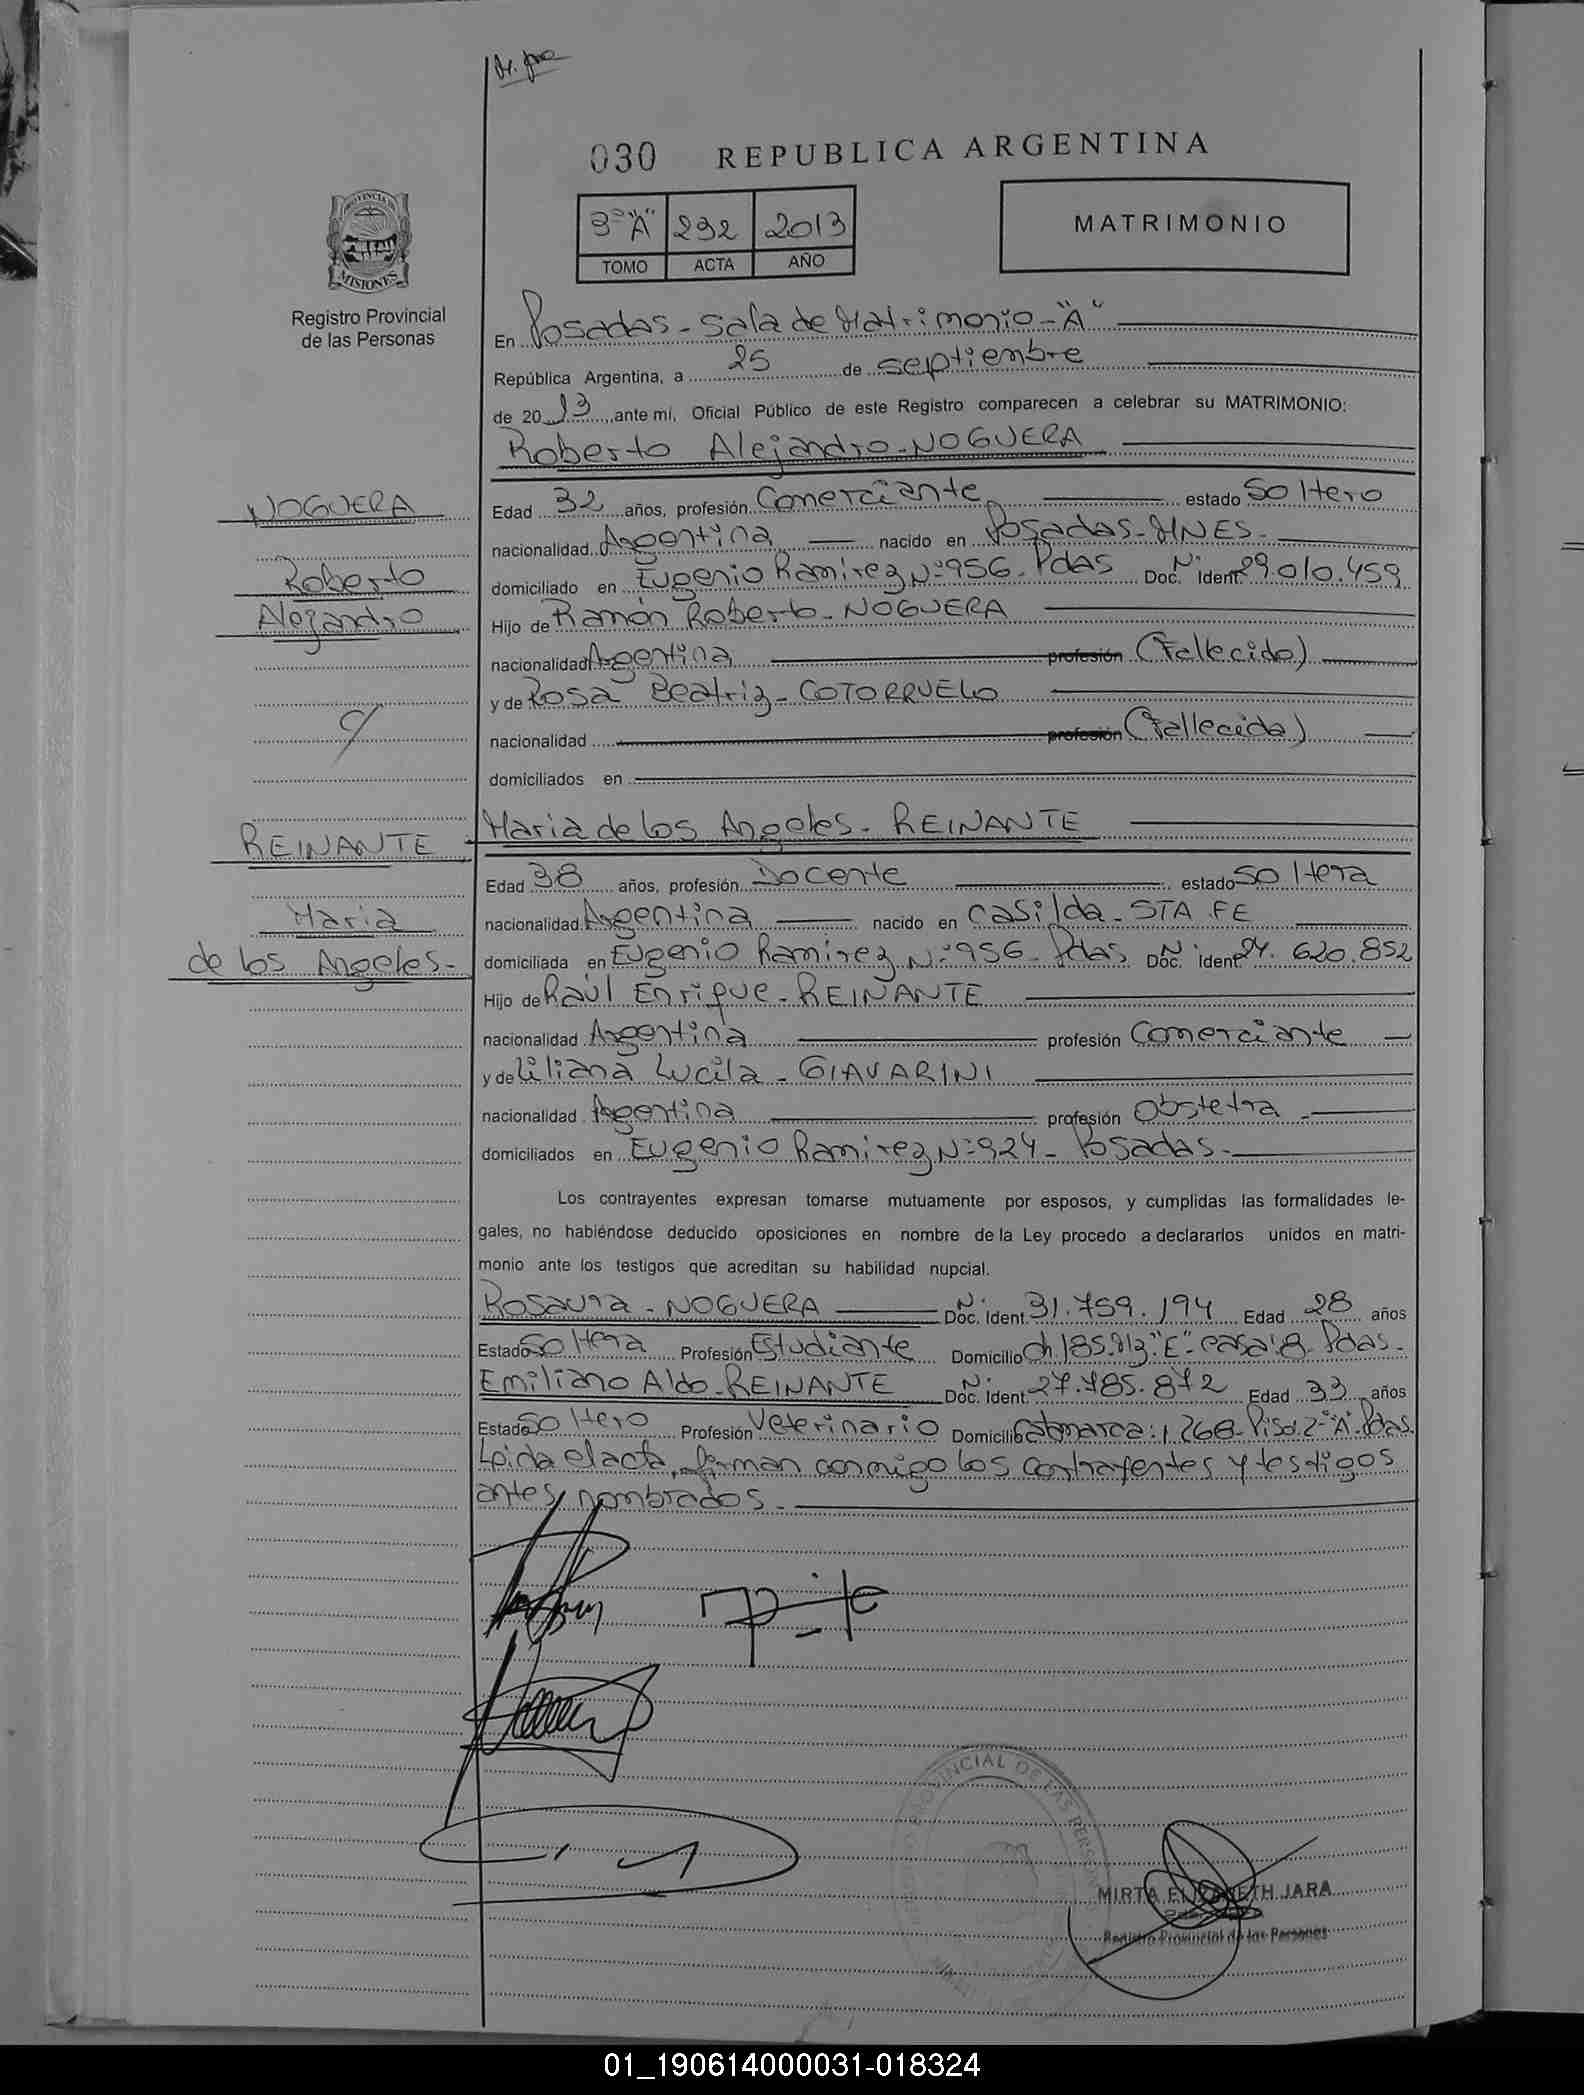 030 REPUBLICA ARGENTINA
3º "A" 232 2013
TOMO ACTA AÑO
MATRIMONIO
PROVINCIA DE
MISIONES
Registro Provincial
de las Personas
En Posadas - Sala de Matrimonio - "A"
República Argentina, a 25 de septiembre
de 2013 ante mi, Oficial Público de este Registro comparecen a celebrar su MATRIMONIO:
Roberto Alejandro - NOGUERA
NOGUERA
Roberto
Alejandro
c/
REINANTE
Maria
de los Angeles.-
Edad 32 años, profesión Comerciante estado Soltero
nacionalidad Argentina nacido en Posadas - MNES.
domiciliado en Eugenio Ramirez Nº 956 - Pdas Doc. Nº Ident 29.010.459
Hijo de Ramón Roberto - NOGUERA
nacionalidad Argentina profesión (Fallecido)
y de Rosa Beatriz - COTORRUELO
nacionalidad profesión (Fallecida)
domiciliados en
Maria de los Angeles - REINANTE
Edad 38 años, profesión Docente estado Soltera
nacionalidad Argentina nacido en Casilda - STA FE
domiciliada en Eugenio Ramirez Nº 956 - Pdas Doc. Nº Ident 24.620.852
Hijo de Raúl Enrique - REINANTE
nacionalidad Argentina profesión Comerciante
y de Liliana Lucila - GIAVARINI
nacionalidad Argentina profesión Obstetra
domiciliados en Eugenio Ramirez Nº 924 - Posadas.
Los contrayentes expresan tomarse mutuamente por esposos, y cumplidas las formalidades le-
gales, no habiéndose deducido oposiciones en nombre de la Ley procedo a declararlos unidos en matri-
monio ante los testigos que acreditan su habilidad nupcial.
Rosaura - NOGUERA Doc. Nº Ident. 31.759.194 Edad 28 años
Estado Soltera Profesión Estudiante Domicilio Ch. 185 Mz "E" casa 8 Pdas.
Emiliano Aldo - REINANTE Doc. Nº Ident. 27.785.872 Edad 33 años
Estado Soltero Profesión Veterinario Domicilio Catamarca: 1.268 - Piso: 2º "A" Pdas.
Leida el acta, firman conmigo los contrayentes y testigos
antes nombrados.
PROVINCIAL DE LAS PERSONAS
MIRTA ELIZABETH JARA
Registro Provincial de las Personas
01_190614000031-018324